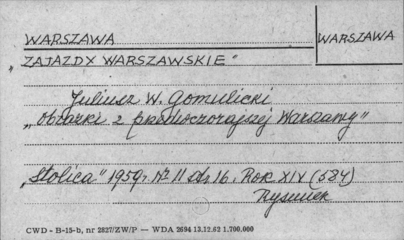 WARSZAWA
WARSZAWA
„ZAJAZDY WARSZAWSKIE"
Juliusz W. Gomulicki
„Obrazki z przedwczorajszej Warszawy"
„Stolica" 1959r. Nr 11 str. 16. Rok XIV (584)
Rysunek
CWD - B-15-b, nr 2827/ZW/P — WDA 2694 13.12.62 1.700.000